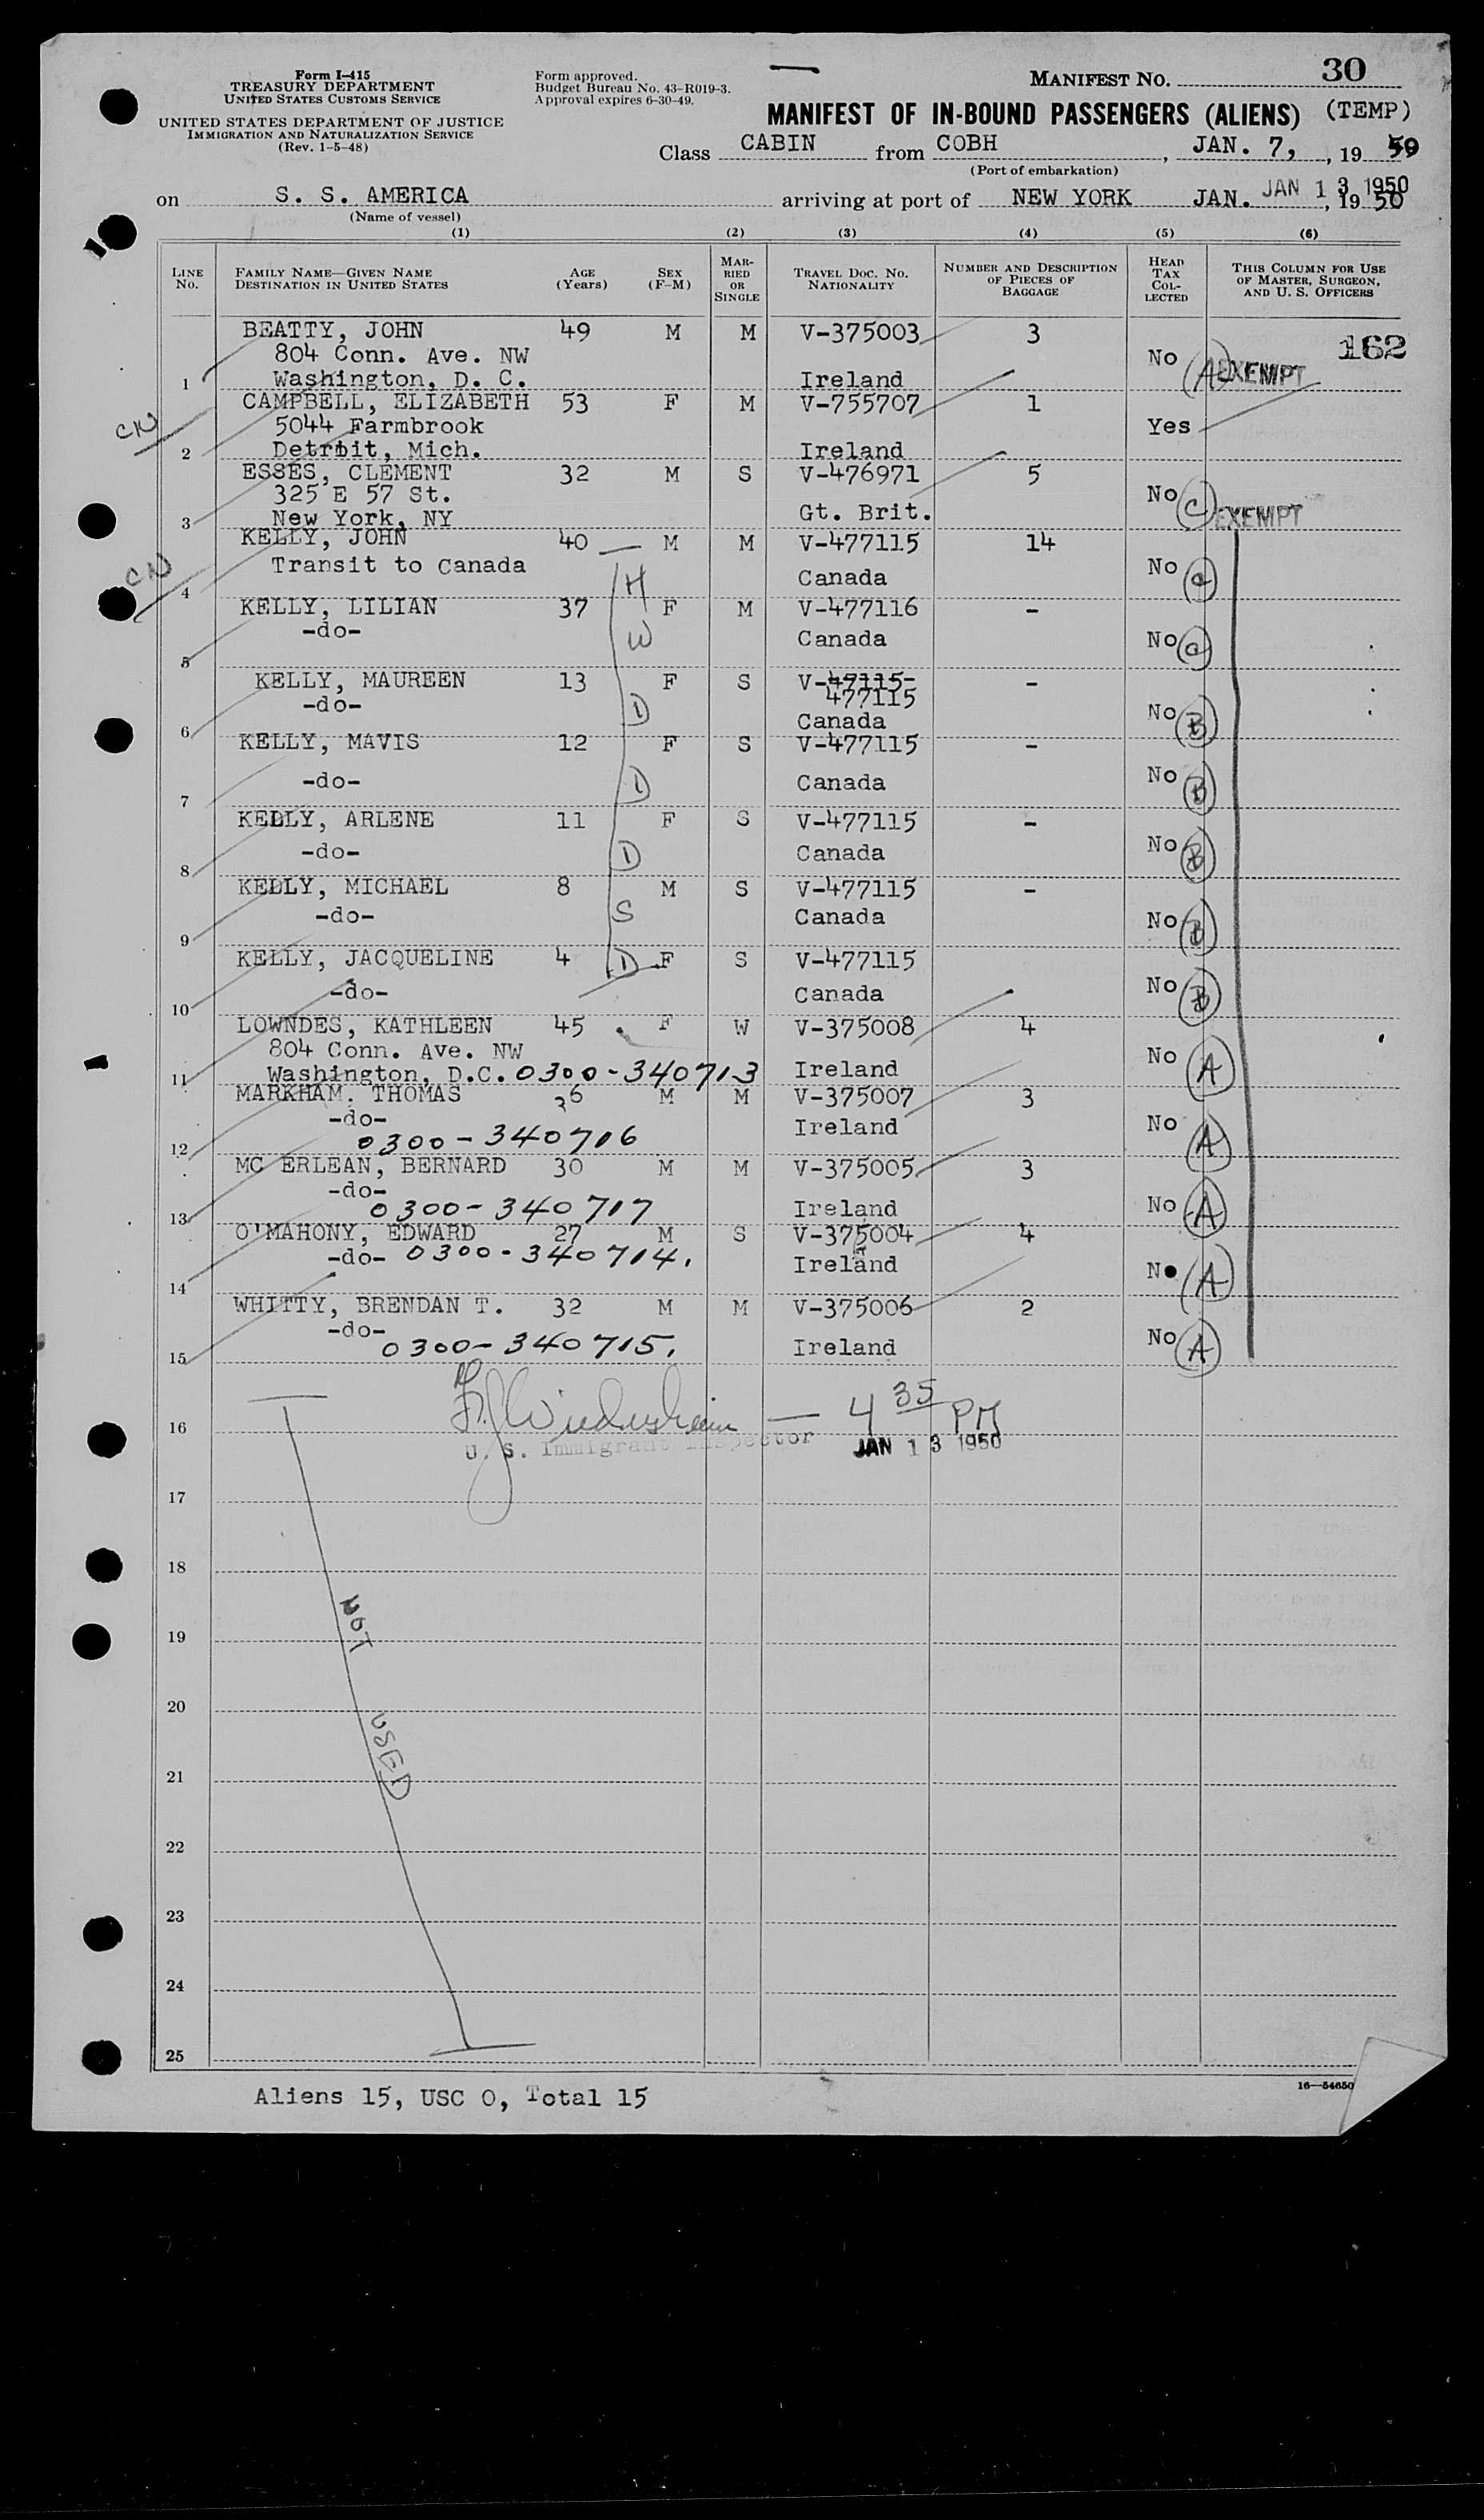 Form I-415
TREASURY DEPARTMENT
UNITED STATES CUSTOMS SERVICE
UNITED STATES DEPARTMENT OF JUSTICE
IMMIGRATION AND NATURALIZATION SERVICE
(Rev. 1-5-48)
Form approved.
Budget Bureau No. 43-R019-3.
Approval expires 6-30-49.
MANIFEST NO. 30
MANIFEST OF IN-BOUND PASSENGERS (ALIENS) (TEMP)
Class CABIN from COBH, JAN. 7, , 19 50
(Port of embarkation)
on S. S. AMERICA arriving at port of NEW YORK JAN. JAN 13 1950 , 19 50
(Name of vessel)
(1) (2) (3) (4) (5) (6)
LINE No. FAMILY NAME—GIVEN NAME DESTINATION IN UNITED STATES AGE (Years) SEX (F-M) MARRIED OR SINGLE TRAVEL DOC. NO. NATIONALITY NUMBER AND DESCRIPTION OF PIECES OF BAGGAGE HEAD TAX COLLECTED THIS COLUMN FOR USE OF MASTER, SURGEON, AND U. S. OFFICERS
BEATTY, JOHN 49 M M V-375003 3 162
804 Conn. Ave. NW No (A) EXEMPT
1 Washington, D. C. Ireland
CAMPBELL, ELIZABETH 53 F M V-755707 1
CN 5044 Farmbrook Yes
2 Detroit, Mich. Ireland
ESSES, CLEMENT 32 M S V-476971 5
325 E 57 St. No (C) EXEMPT
3 New York, NY Gt. Brit.
KELLY, JOHN 40 M M V-477115 14
CN Transit to Canada H Canada No (C)
4
KELLY, LILIAN 37 F M V-477116 -
-do- W Canada No (C)
5
KELLY, MAUREEN 13 F S V-47115-
-do- D 477115 -
6 Canada No (B)
KELLY, MAVIS 12 F S V-477115 -
-do- D Canada No (B)
7
KELLY, ARLENE 11 F S V-477115 -
-do- D Canada No (B)
8
KELLY, MICHAEL 8 M S V-477115 -
-do- S Canada No (B)
9
KELLY, JACQUELINE 4 D F S V-477115
-do- Canada No (B)
10
LOWNDES, KATHLEEN 45 F W V-375008 4
804 Conn. Ave. NW No (A)
11 Washington, D.C. 0300-340713 Ireland
MARKHAM. THOMAS 36 M M V-375007 3
-do- Ireland No (A)
12 0300-340716
MC ERLEAN, BERNARD 30 M M V-375005 3
-do- No (A)
13 0300-340717 Ireland
O'MAHONY, EDWARD 27 M S V-375004 4
-do- 0300-340714. Ireland No (A)
14
WHITTY, BRENDAN T. 32 M M V-375006 2
-do- No (A)
15 0300-340715. Ireland
16 4 35 PM
U. S. Immigrant Inspector JAN 13 1950
17
18
19 NOT
20
21 USED
22
23
24
25
16—54650
Aliens 15, USC 0, Total 15